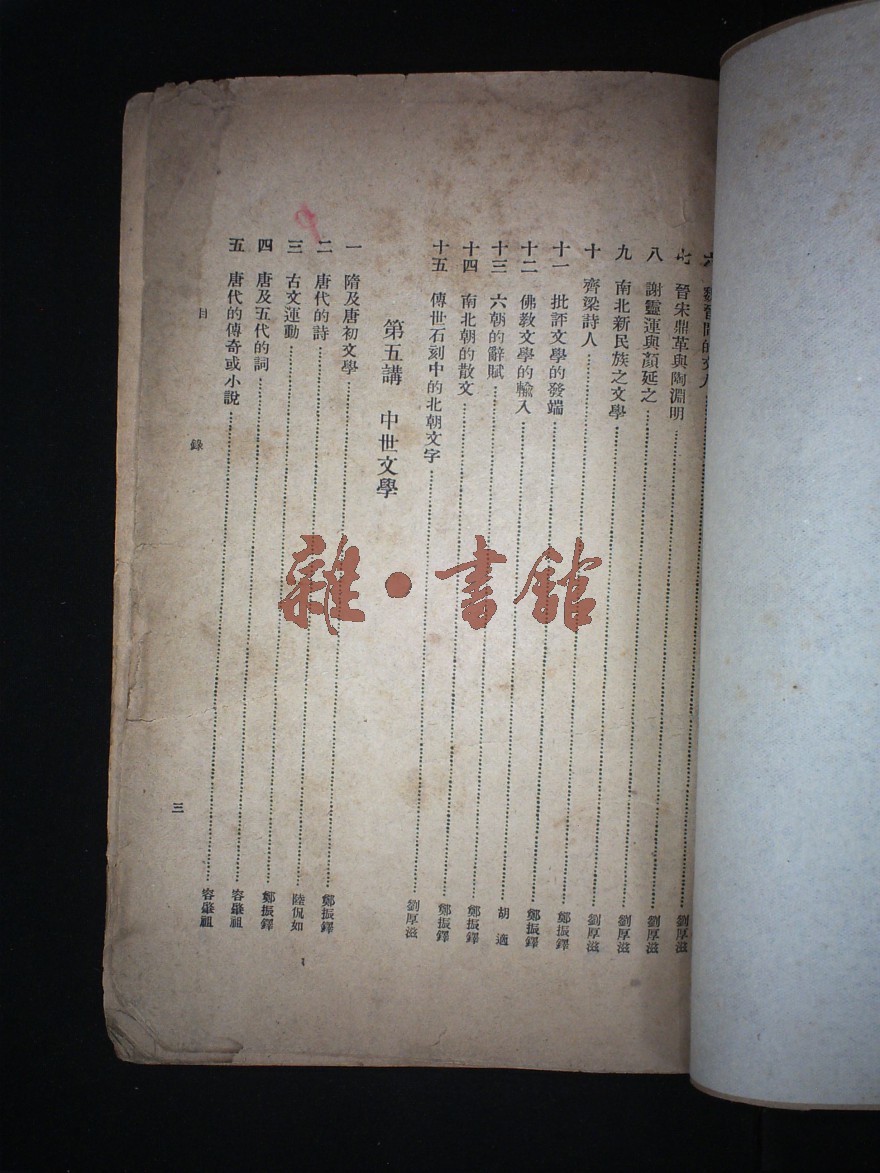 六 魏晉間的文人 劉厚滋
七 晉宋鼎革與陶淵明 劉厚滋
八 謝靈運與顏延之 劉厚滋
九 南北新民族之文學 劉厚滋
十 齊梁詩人 鄭振鐸
十一 批評文學的發端 鄭振鐸
十二 佛教文學的輸入 胡適
十三 六朝的辭賦 鄭振鐸
十四 南北朝的散文 鄭振鐸
十五 傳世石刻中的北朝文字 劉厚滋
第五講 中世文學
一 隋及唐初文學 鄭振鐸
二 唐代的詩 陸侃如
三 古文運動 鄭振鐸
四 唐及五代的詞 容肇祖
五 唐代的傳奇或小說 容肇祖
目錄 三
雜·書館